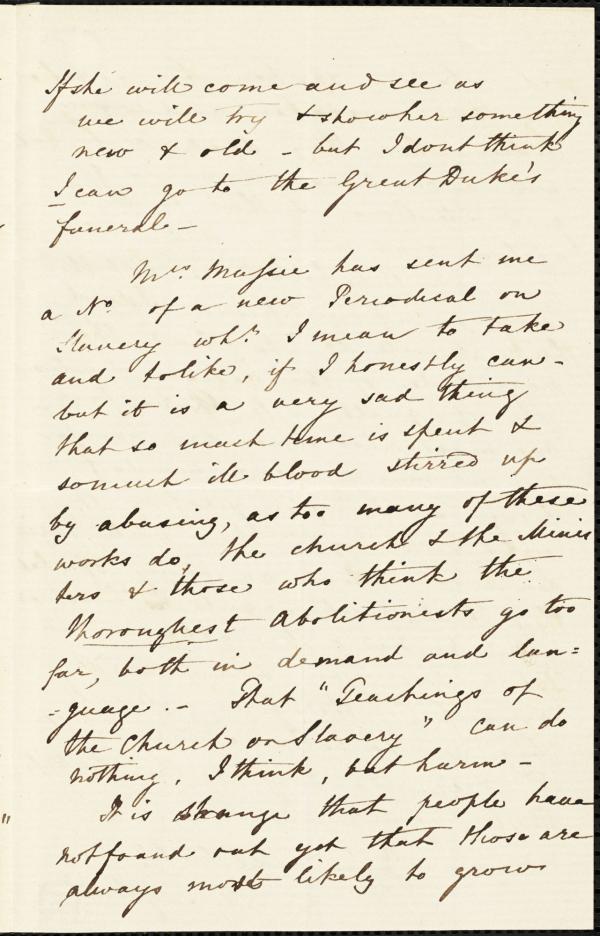 If she will come and see us
we will try & show her something
new & old – but I dont think
I can go to the Great Duke's
funeral –
Mrs Massie has sent me
a No. of a new Periodical on
Slavery whh. I mean to take
and to like, if I honestly can –
but it is a very sad thing
that so much time is spent &
so much ill blood stirred up
by abusing, as too many of these
works do, the church & the Minis
ters & those who think the
thoroughest Abolitionists go too
far, both in demand and lan=
=guage. – That "Teachings of
the Church on Slavery" can do
nothing, I think, but harm –
It is strange that people have
not found out yet that those are
always most likely to grow
"